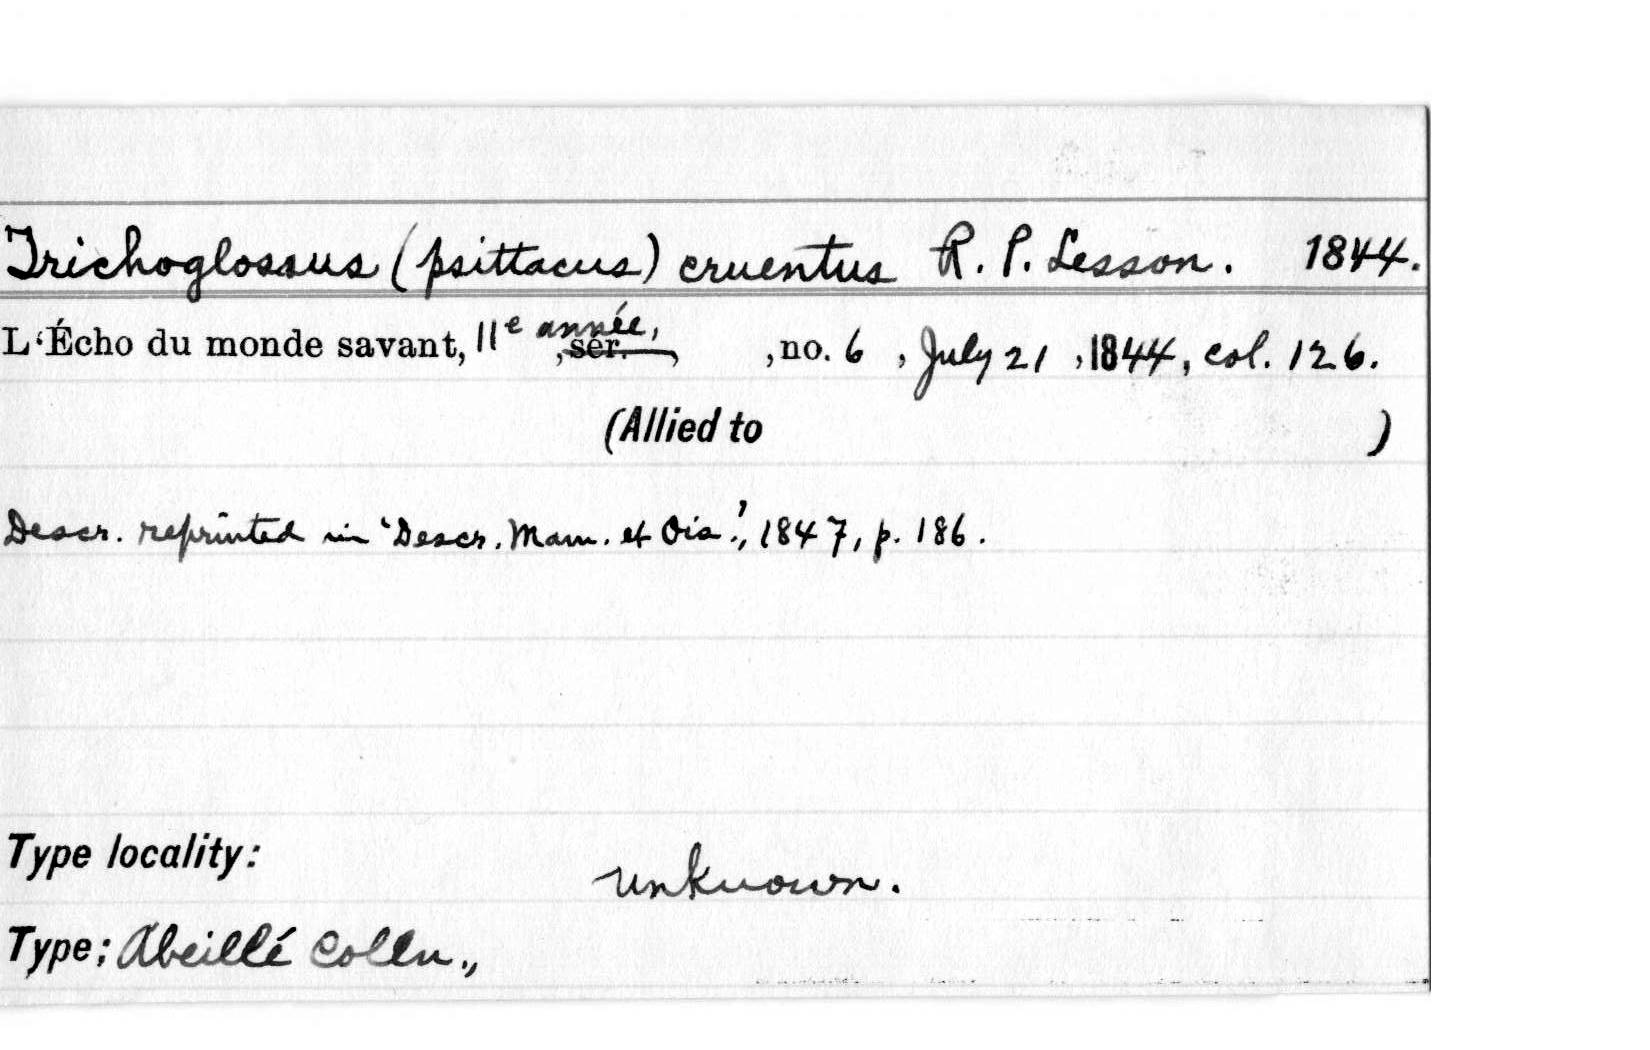 Trichoglossus (psittacus) cruentus R. P. Lesson. 1844.
L'Écho du monde savant, 11e année, ,ser. , ,no. 6 , July 21 ,1844, col. 126.
(Allied to )
Descr. reprinted in 'Descr. Mam. et Ois.', 1847, p. 186.
Type locality: unknown.
Type; Abeillé Colln.,